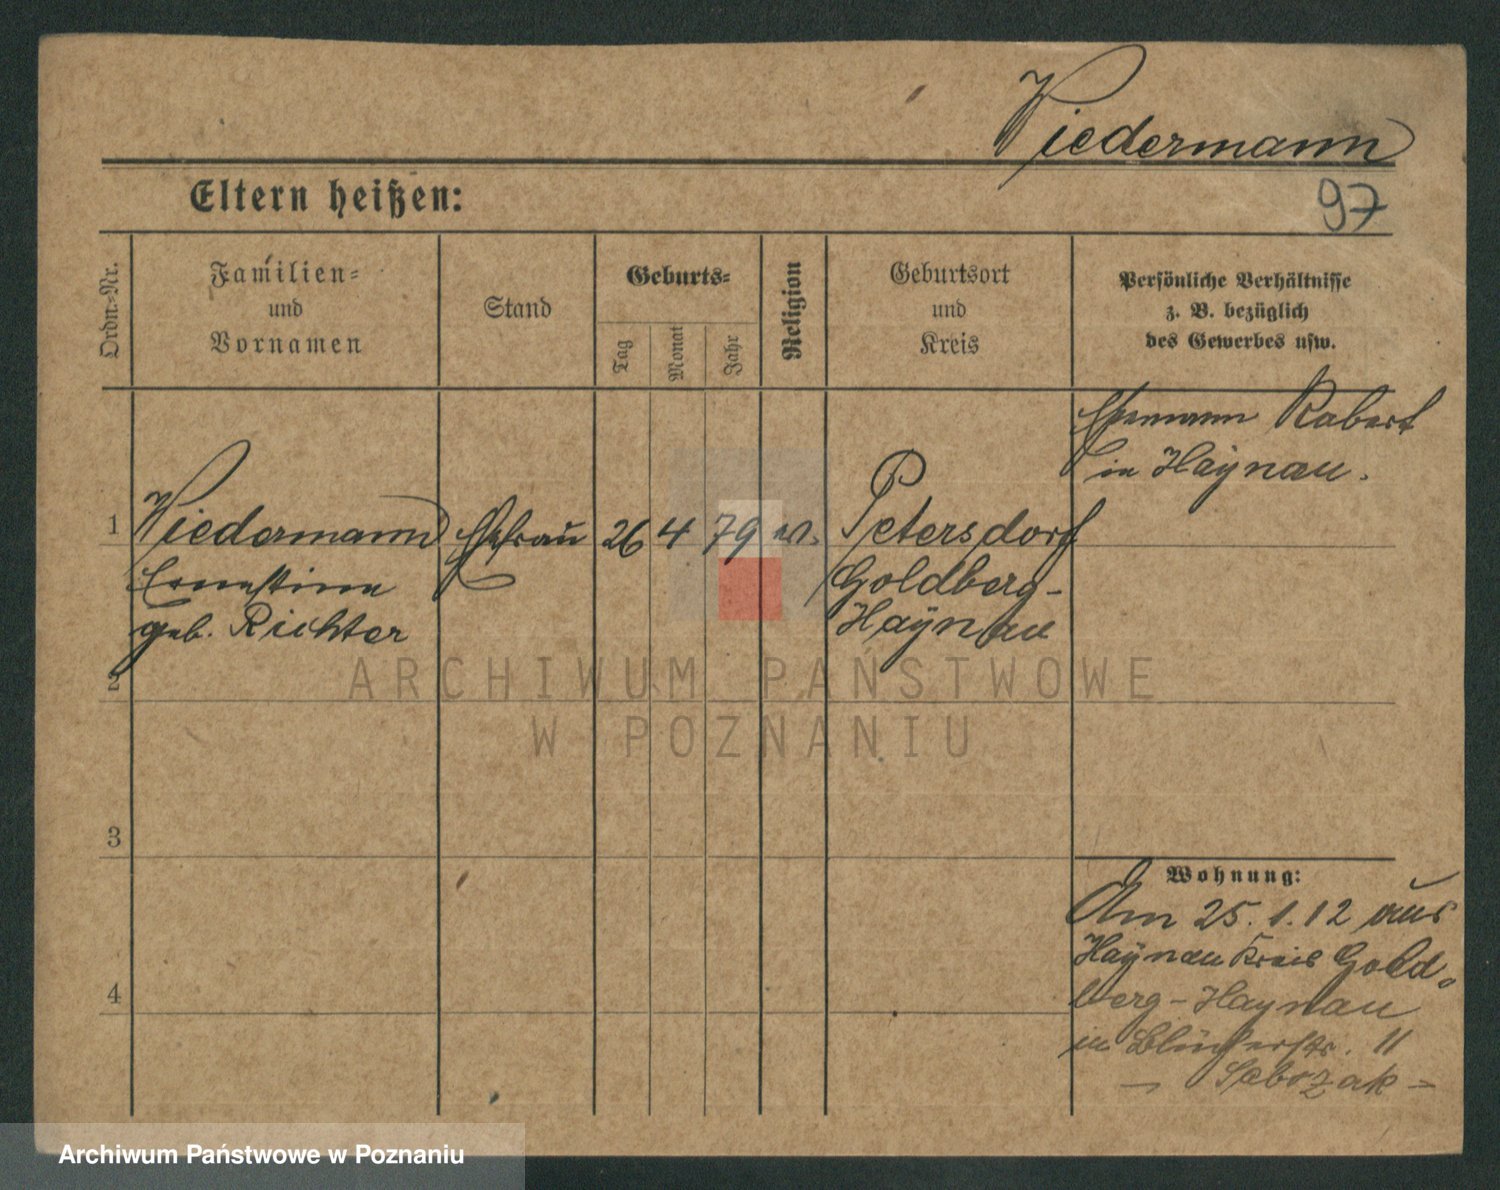 Wiedermann
Eltern heißen:
97
Ordn.-Nr.
Familien-
und
Vornamen
Stand
Geburts-
Tag
Monat
Jahr
Religion
Geburtsort
und
Kreis
Persönliche Verhältnisse
z. B. bezüglich
des Gewerbes usw.
Ehemann Robert
in Haynau.
1
Wiedermann Ehefrau 26 4 79 ev. Petersdorf
Ernestine
Goldberg-
geb. Richter
Haynau
2
ARCHIWUM PAŃSTWOWE
W POZNANIU
3
Wohnung:
Am 25.1.12 aus
Haynau Kreis Gold-
4
berg-Haynau
in Blücherstr. 11
Archiwum Państwowe w Poznaniu